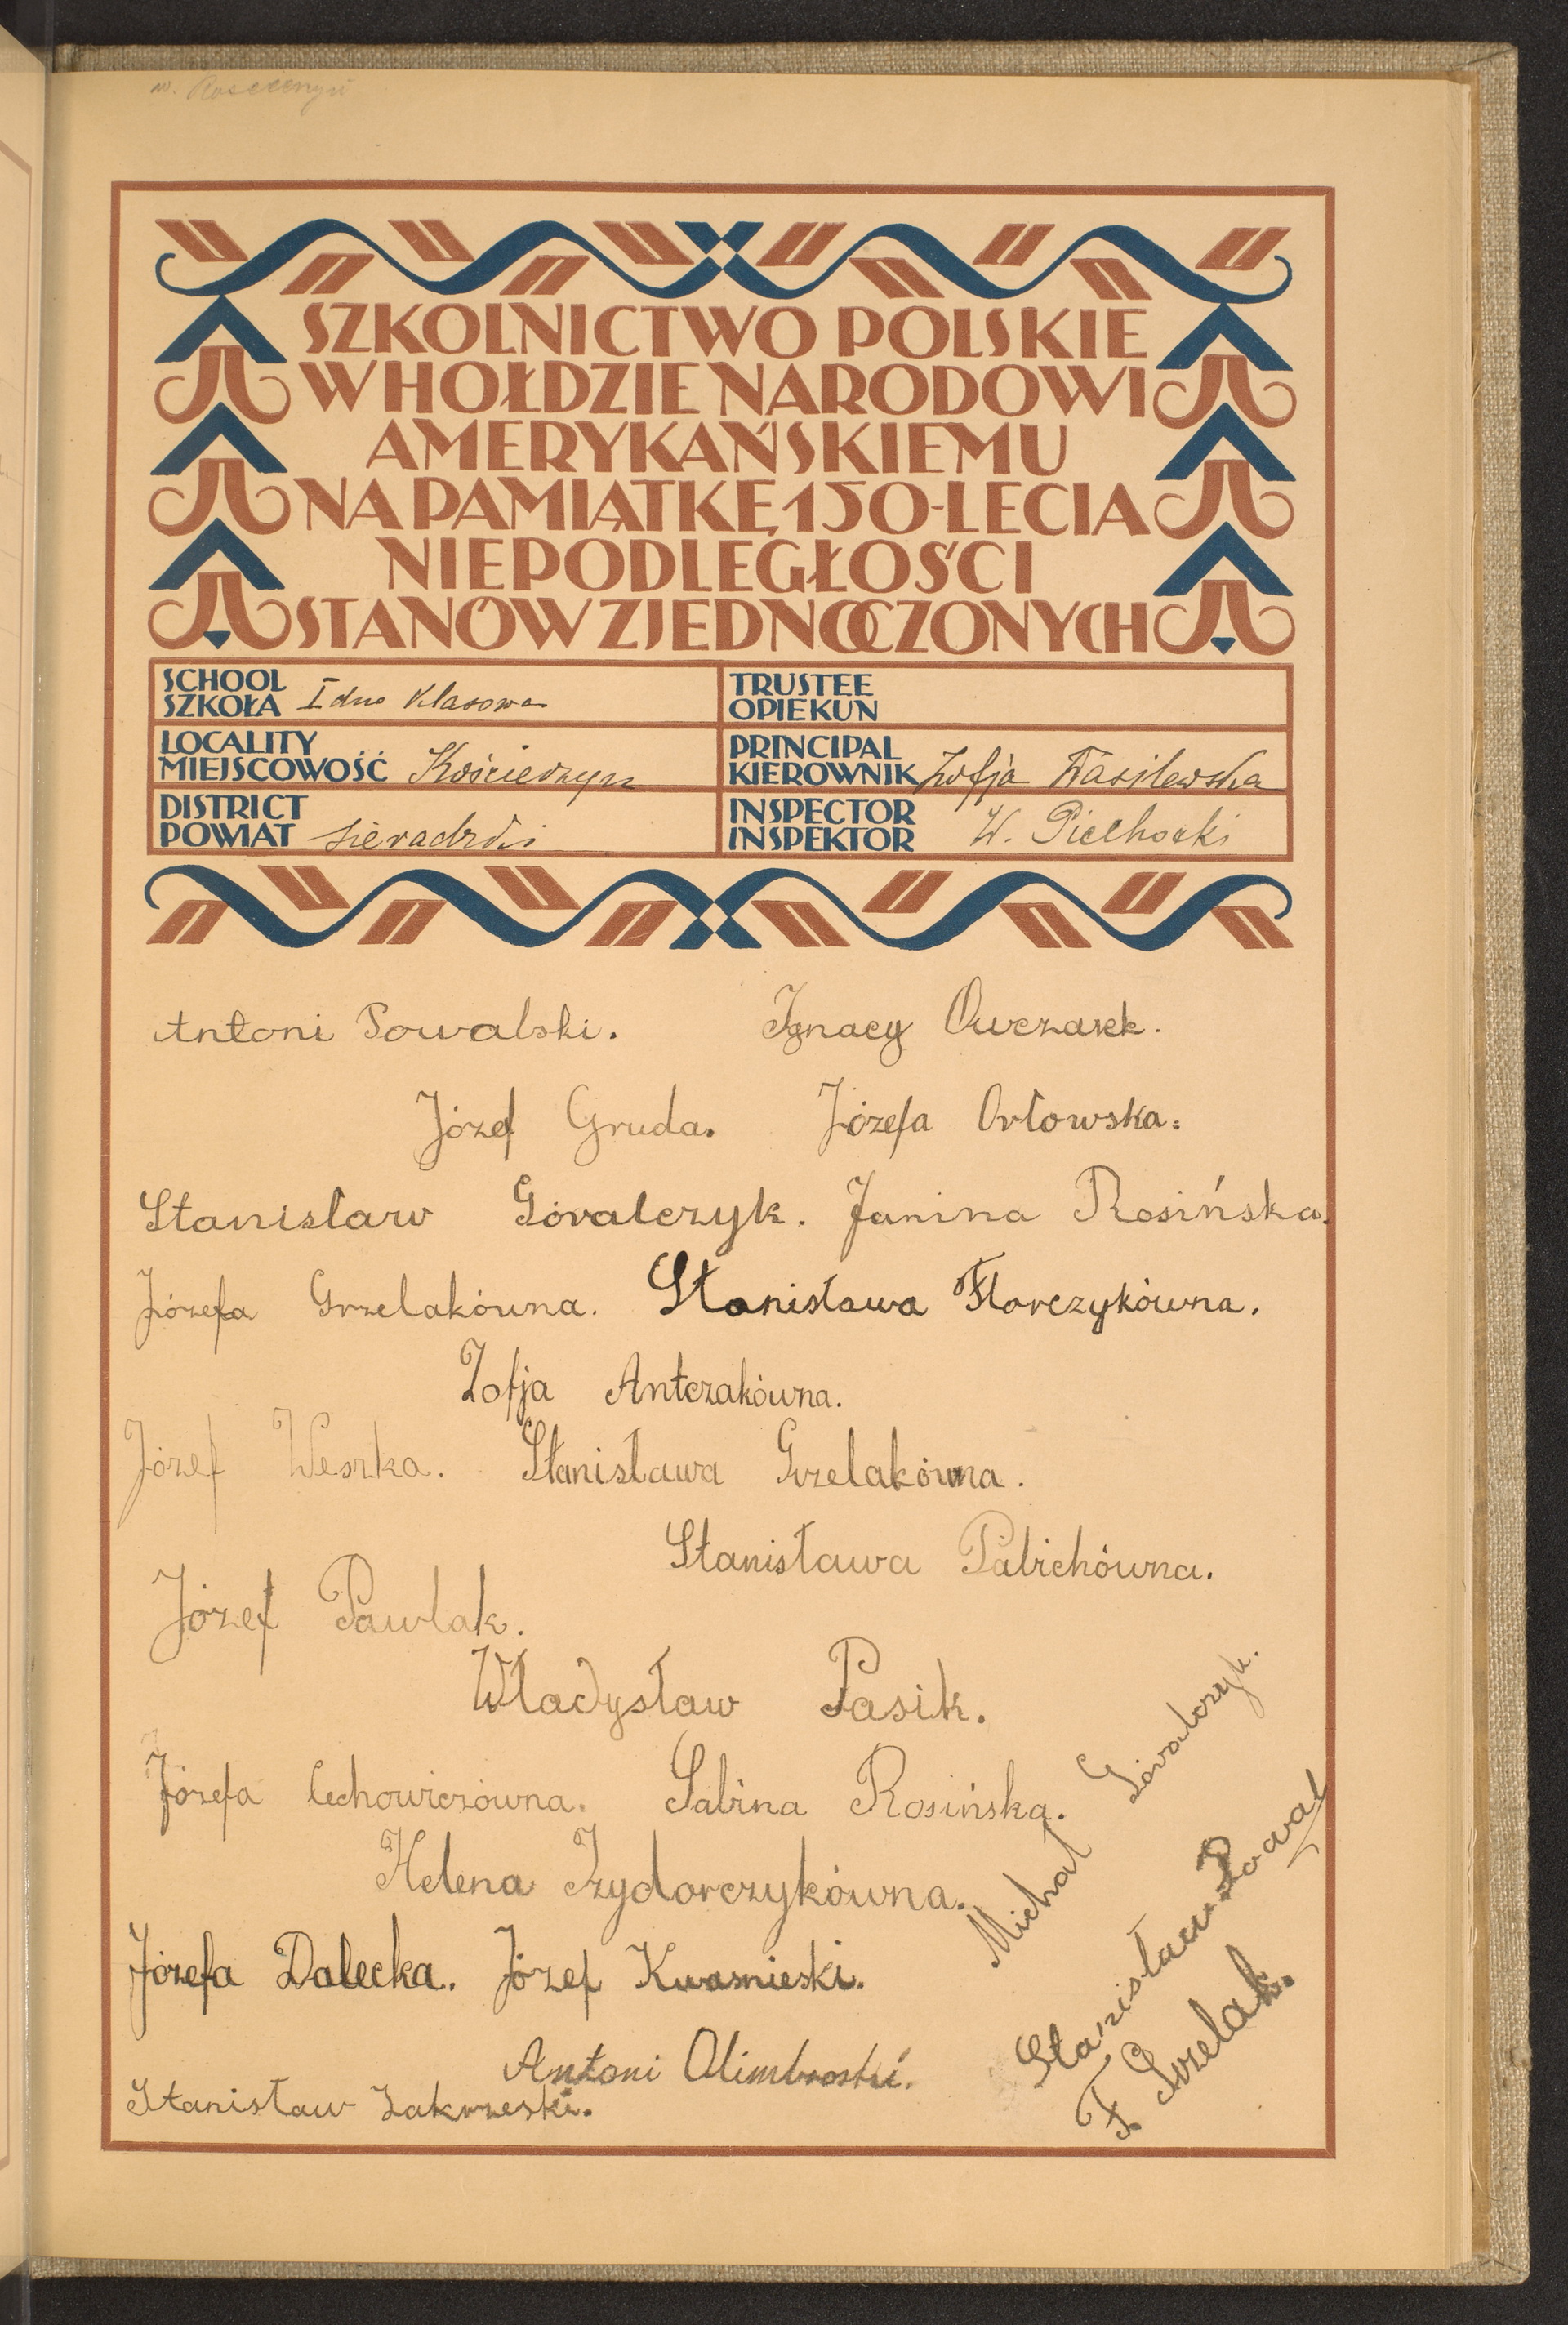 SZKOLNICTWO POLSKIE
W HOŁDZIE NARODOWI
AMERYKAŃSKIEMU
NA PAMIĄTKĘ 150-LECIA
NIEPODLEGŁOŚCI
STANÓW ZJEDNOCZONYCH
SCHOOL
SZKOŁA I dno Klasowa
TRUSTEE
OPIEKUN
LOCALITY
MIEJSCOWOŚĆ Kościerzyn
PRINCIPAL
KIEROWNIK Zofja Wasilewska
DISTRICT
POWIAT sieradzki
INSPECTOR
INSPEKTOR W. Piechocki
Antoni Powalski. Ignacy Owczarek.
Józef Gruda. Józefa Orłowska.
Stanisław Góralczyk. Janina Rosińska.
Józefa Grzelakówna. Stanisława Florczykówna.
Zofja Antczakówna.
Józef Weszka. Stanisława Grzelakówna.
Stanisława Pabichówna.
Józef Pawlak.
Władysław Pasik.
Józefa Lechowiczówna. Sabina Rosińska.
Michał Góralczyk.
Helena Izydorczykówna.
Stanisław Powal
Józefa Dalecka. Józef Kwasnieski.
F. Grzelak.
Antoni
Stanisław Zakrzeski.